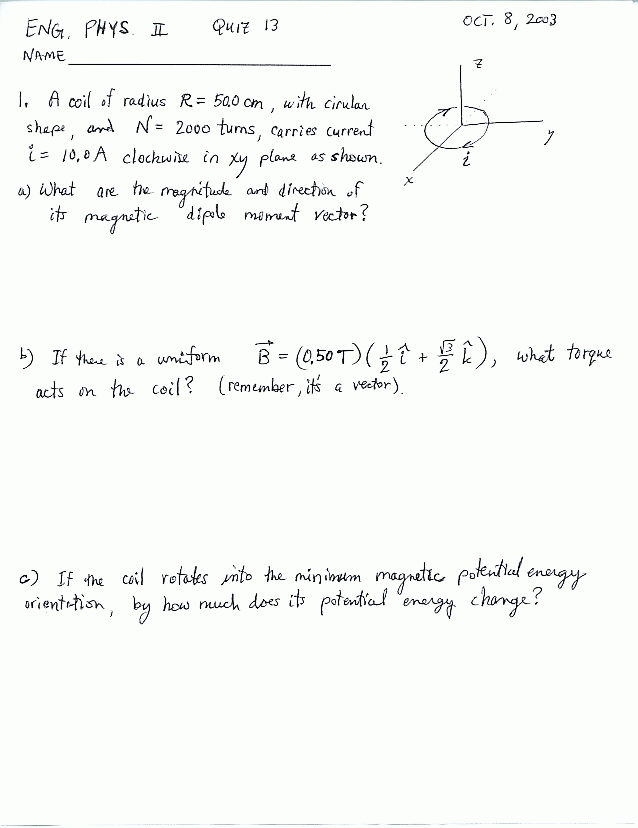 ENG. PHYS. II QUIZ 13 OCT. 8, 2003
NAME
z
y
x
i
1. A coil of radius R = 50.0 cm, with cirular
shape, and N = 2000 turns, carries current
i = 10.0 A clockwise in xy plane as shown.
a) What are the magnitude and direction of
its magnetic dipole moment vector?
b) If there is a uniform B⃗ = (0.50 T)(1/2 î + √3/2 k̂), what torque
acts on the coil? (remember, it's a vector).
c) If the coil rotates into the minimum magnetic potential energy
orientation, by how much does its potential energy change?